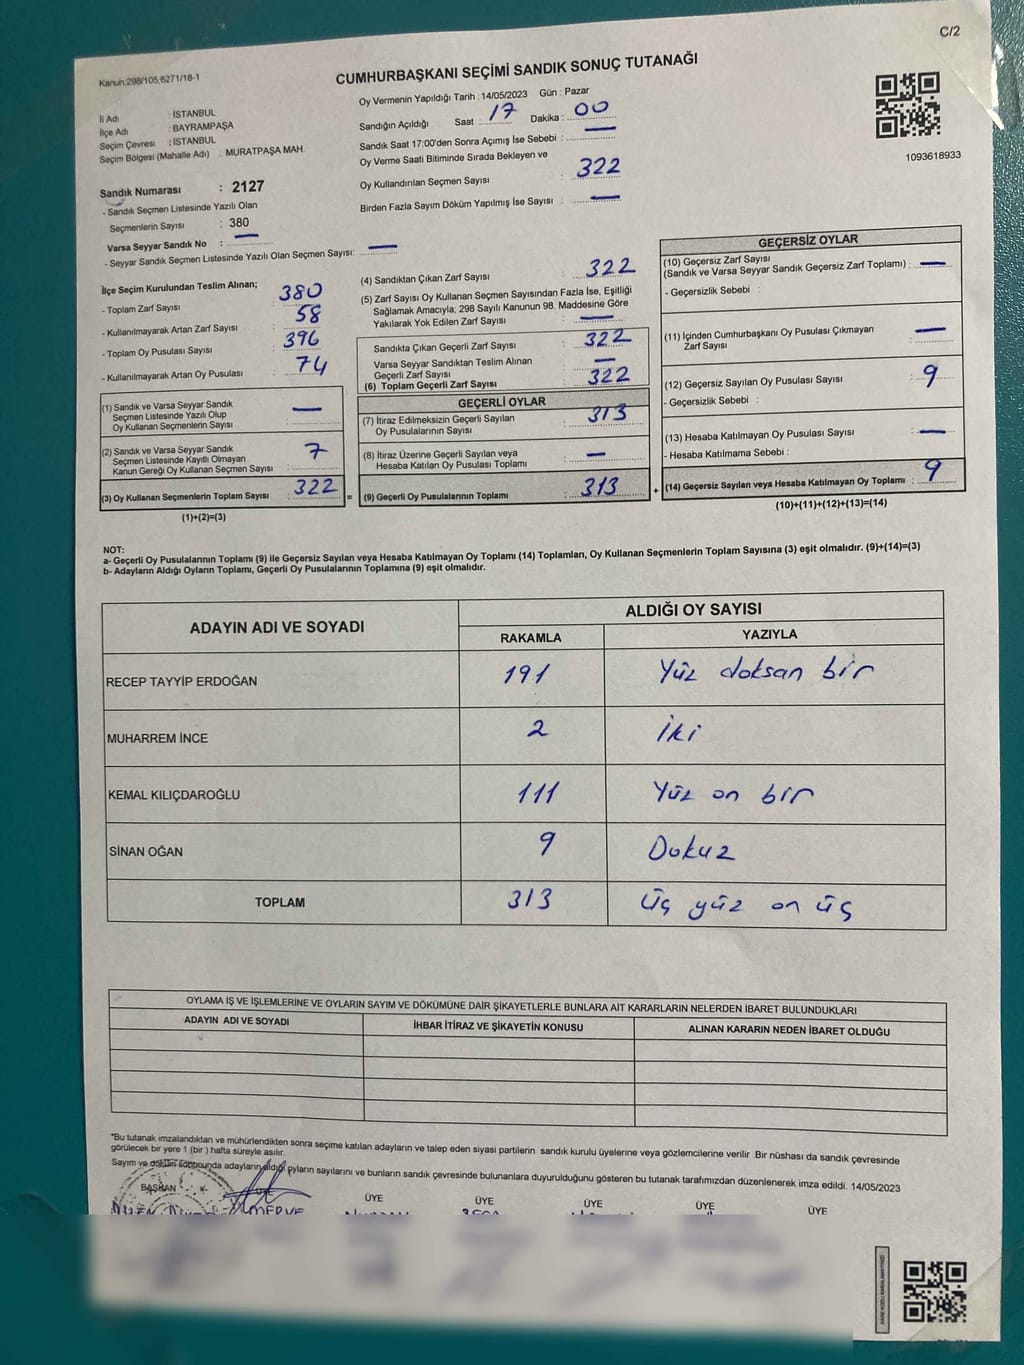 C/2
Kanun:298/105,6271/18-1
CUMHURBAŞKANI SEÇİMİ SANDIK SONUÇ TUTANAĞI
İl Adı : İSTANBUL
İlçe Adı : BAYRAMPAŞA
Seçim Çevresi : İSTANBUL
Seçim Bölgesi (Mahalle Adı) : MURATPAŞA MAH.
Oy Vermenin Yapıldığı Tarih : 14/05/2023 Gün : Pazar
Sandığın Açıldığı Saat : 17 Dakika : 00
Sandık Saat 17:00'den Sonra Açımış İse Sebebi : —
Oy Verme Saati Bitiminde Sırada Bekleyen ve
Oy Kullandırılan Seçmen Sayısı : 322
Birden Fazla Sayım Döküm Yapılmış İse Sayısı : —
1093618933
Sandık Numarası : 2127
- Sandık Seçmen Listesinde Yazılı Olan
Seçmenlerin Sayısı : 380
Varsa Seyyar Sandık No : —
- Seyyar Sandık Seçmen Listesinde Yazılı Olan Seçmen Sayısı: —
İlçe Seçim Kurulundan Teslim Alınan;
- Toplam Zarf Sayısı : 380
- Kullanılmayarak Artan Zarf Sayısı : 58
- Toplam Oy Pusulası Sayısı : 396
- Kullanılmayarak Artan Oy Pusulası : 74
(1) Sandık ve Varsa Seyyar Sandık
Seçmen Listesinde Yazılı Olup
Oy Kullanan Seçmenlerin Sayısı : —
(2) Sandık ve Varsa Seyyar Sandık
Seçmen Listesinde Kayıtlı Olmayan
Kanun Gereği Oy Kullanan Seçmen Sayısı : 7
(3) Oy Kullanan Seçmenlerin Toplam Sayısı : 322 =
(1)+(2)=(3)
(4) Sandıktan Çıkan Zarf Sayısı : 322
(5) Zarf Sayısı Oy Kullanan Seçmen Sayısından Fazla İse, Eşitliği
Sağlamak Amacıyla, 298 Sayılı Kanunun 98. Maddesine Göre
Yakılarak Yok Edilen Zarf Sayısı : —
Sandıkta Çıkan Geçerli Zarf Sayısı : 322
Varsa Seyyar Sandıktan Teslim Alınan
Geçerli Zarf Sayısı : —
(6) Toplam Geçerli Zarf Sayısı : 322
GEÇERLİ OYLAR
(7) İtiraz Edilmeksizin Geçerli Sayılan
Oy Pusulalarının Sayısı : 313
(8) İtiraz Üzerine Geçerli Sayılan veya
Hesaba Katılan Oy Pusulası Toplamı : —
(9) Geçerli Oy Pusulalarının Toplamı : 313 +
GEÇERSİZ OYLAR
(10) Geçersiz Zarf Sayısı
(Sandık ve Varsa Seyyar Sandık Geçersiz Zarf Toplamı) : —
- Geçersizlik Sebebi :
(11) İçinden Cumhurbaşkanı Oy Pusulası Çıkmayan
Zarf Sayısı : —
(12) Geçersiz Sayılan Oy Pusulası Sayısı : 9
- Geçersizlik Sebebi :
(13) Hesaba Katılmayan Oy Pusulası Sayısı : —
- Hesaba Katılmama Sebebi :
(14) Geçersiz Sayılan veya Hesaba Katılmayan Oy Toplamı : 9
(10)+(11)+(12)+(13)=(14)
NOT:
a- Geçerli Oy Pusulalarının Toplamı (9) ile Geçersiz Sayılan veya Hesaba Katılmayan Oy Toplamı (14) Toplamları, Oy Kullanan Seçmenlerin Toplam Sayısına (3) eşit olmalıdır. (9)+(14)=(3)
b- Adayların Aldığı Oyların Toplamı, Geçerli Oy Pusulalarının Toplamına (9) eşit olmalıdır.
ADAYIN ADI VE SOYADI ALDIĞI OY SAYISI
RAKAMLA YAZIYLA
RECEP TAYYİP ERDOĞAN 191 Yüz doksan bir
MUHARREM İNCE 2 İki
KEMAL KILIÇDAROĞLU 111 Yüz on bir
SİNAN OĞAN 9 Dokuz
TOPLAM 313 üç yüz on üç
OYLAMA İŞ VE İŞLEMLERİNE VE OYLARIN SAYIM VE DÖKÜMÜNE DAİR ŞİKAYETLERLE BUNLARA AİT KARARLARIN NELERDEN İBARET BULUNDUKLARI
ADAYIN ADI VE SOYADI İHBAR İTİRAZ VE ŞİKAYETİN KONUSU ALINAN KARARIN NEDEN İBARET OLDUĞU
*Bu tutanak imzalandıktan ve mühürlendikten sonra seçime katılan adayların ve talep eden siyasi partilerin sandık kurulu üyelerine veya gözlemcilerine verilir .Bir nüshası da sandık çevresinde
görülecek bir yere 1 (bir ) hafta süreyle asılır.
Sayım ve döküm sonunda adayların aldığı oyların sayılarını ve bunların sandık çevresinde bulunanlara duyurulduğunu gösteren bu tutanak tarafımızdan düzenlenerek imza edildi. 14/05/2023
BAŞKAN ÜYE ÜYE ÜYE ÜYE ÜYE ÜYE
MERVE